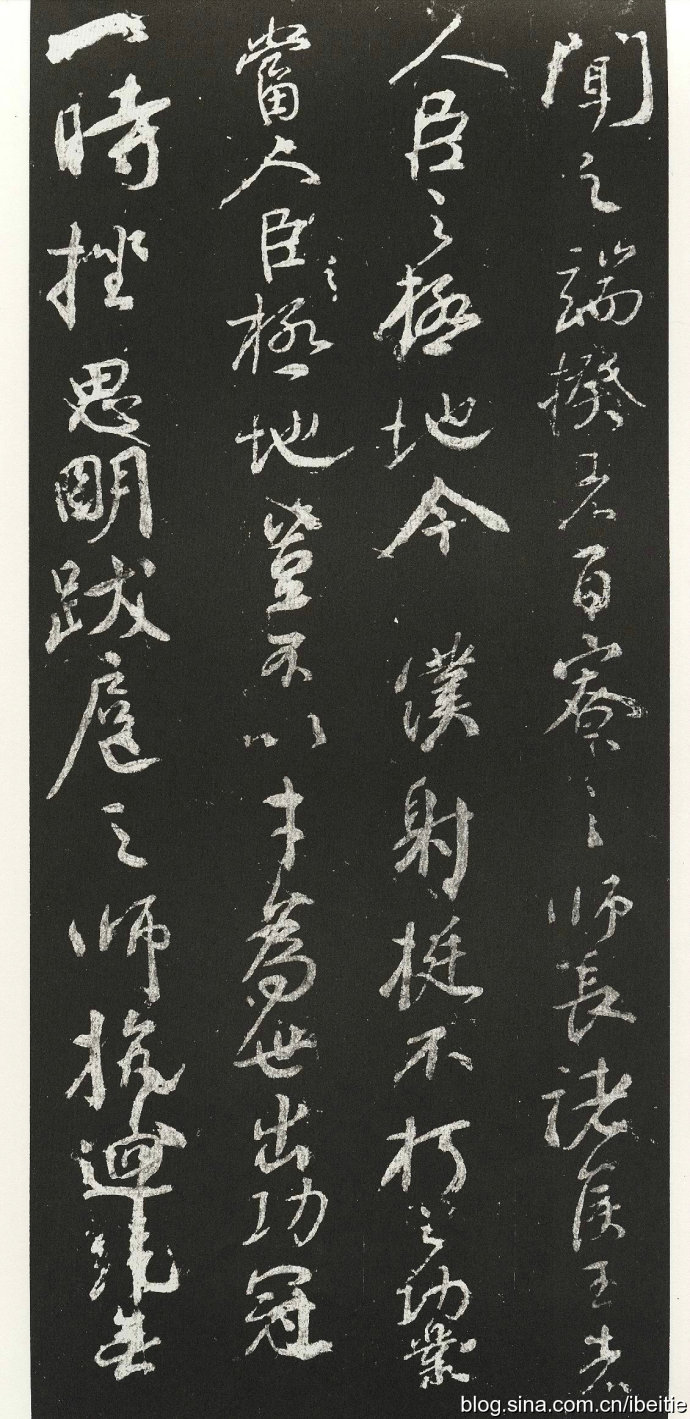 聞之端揆者百寮之師長諸侯王者
人臣之極地今僕射挺不朽之功業
當人臣之極地豈不以才為世出功冠
一時挫思明跋扈之師抗迴紇無
blog.sina.com.cn/ibeitie